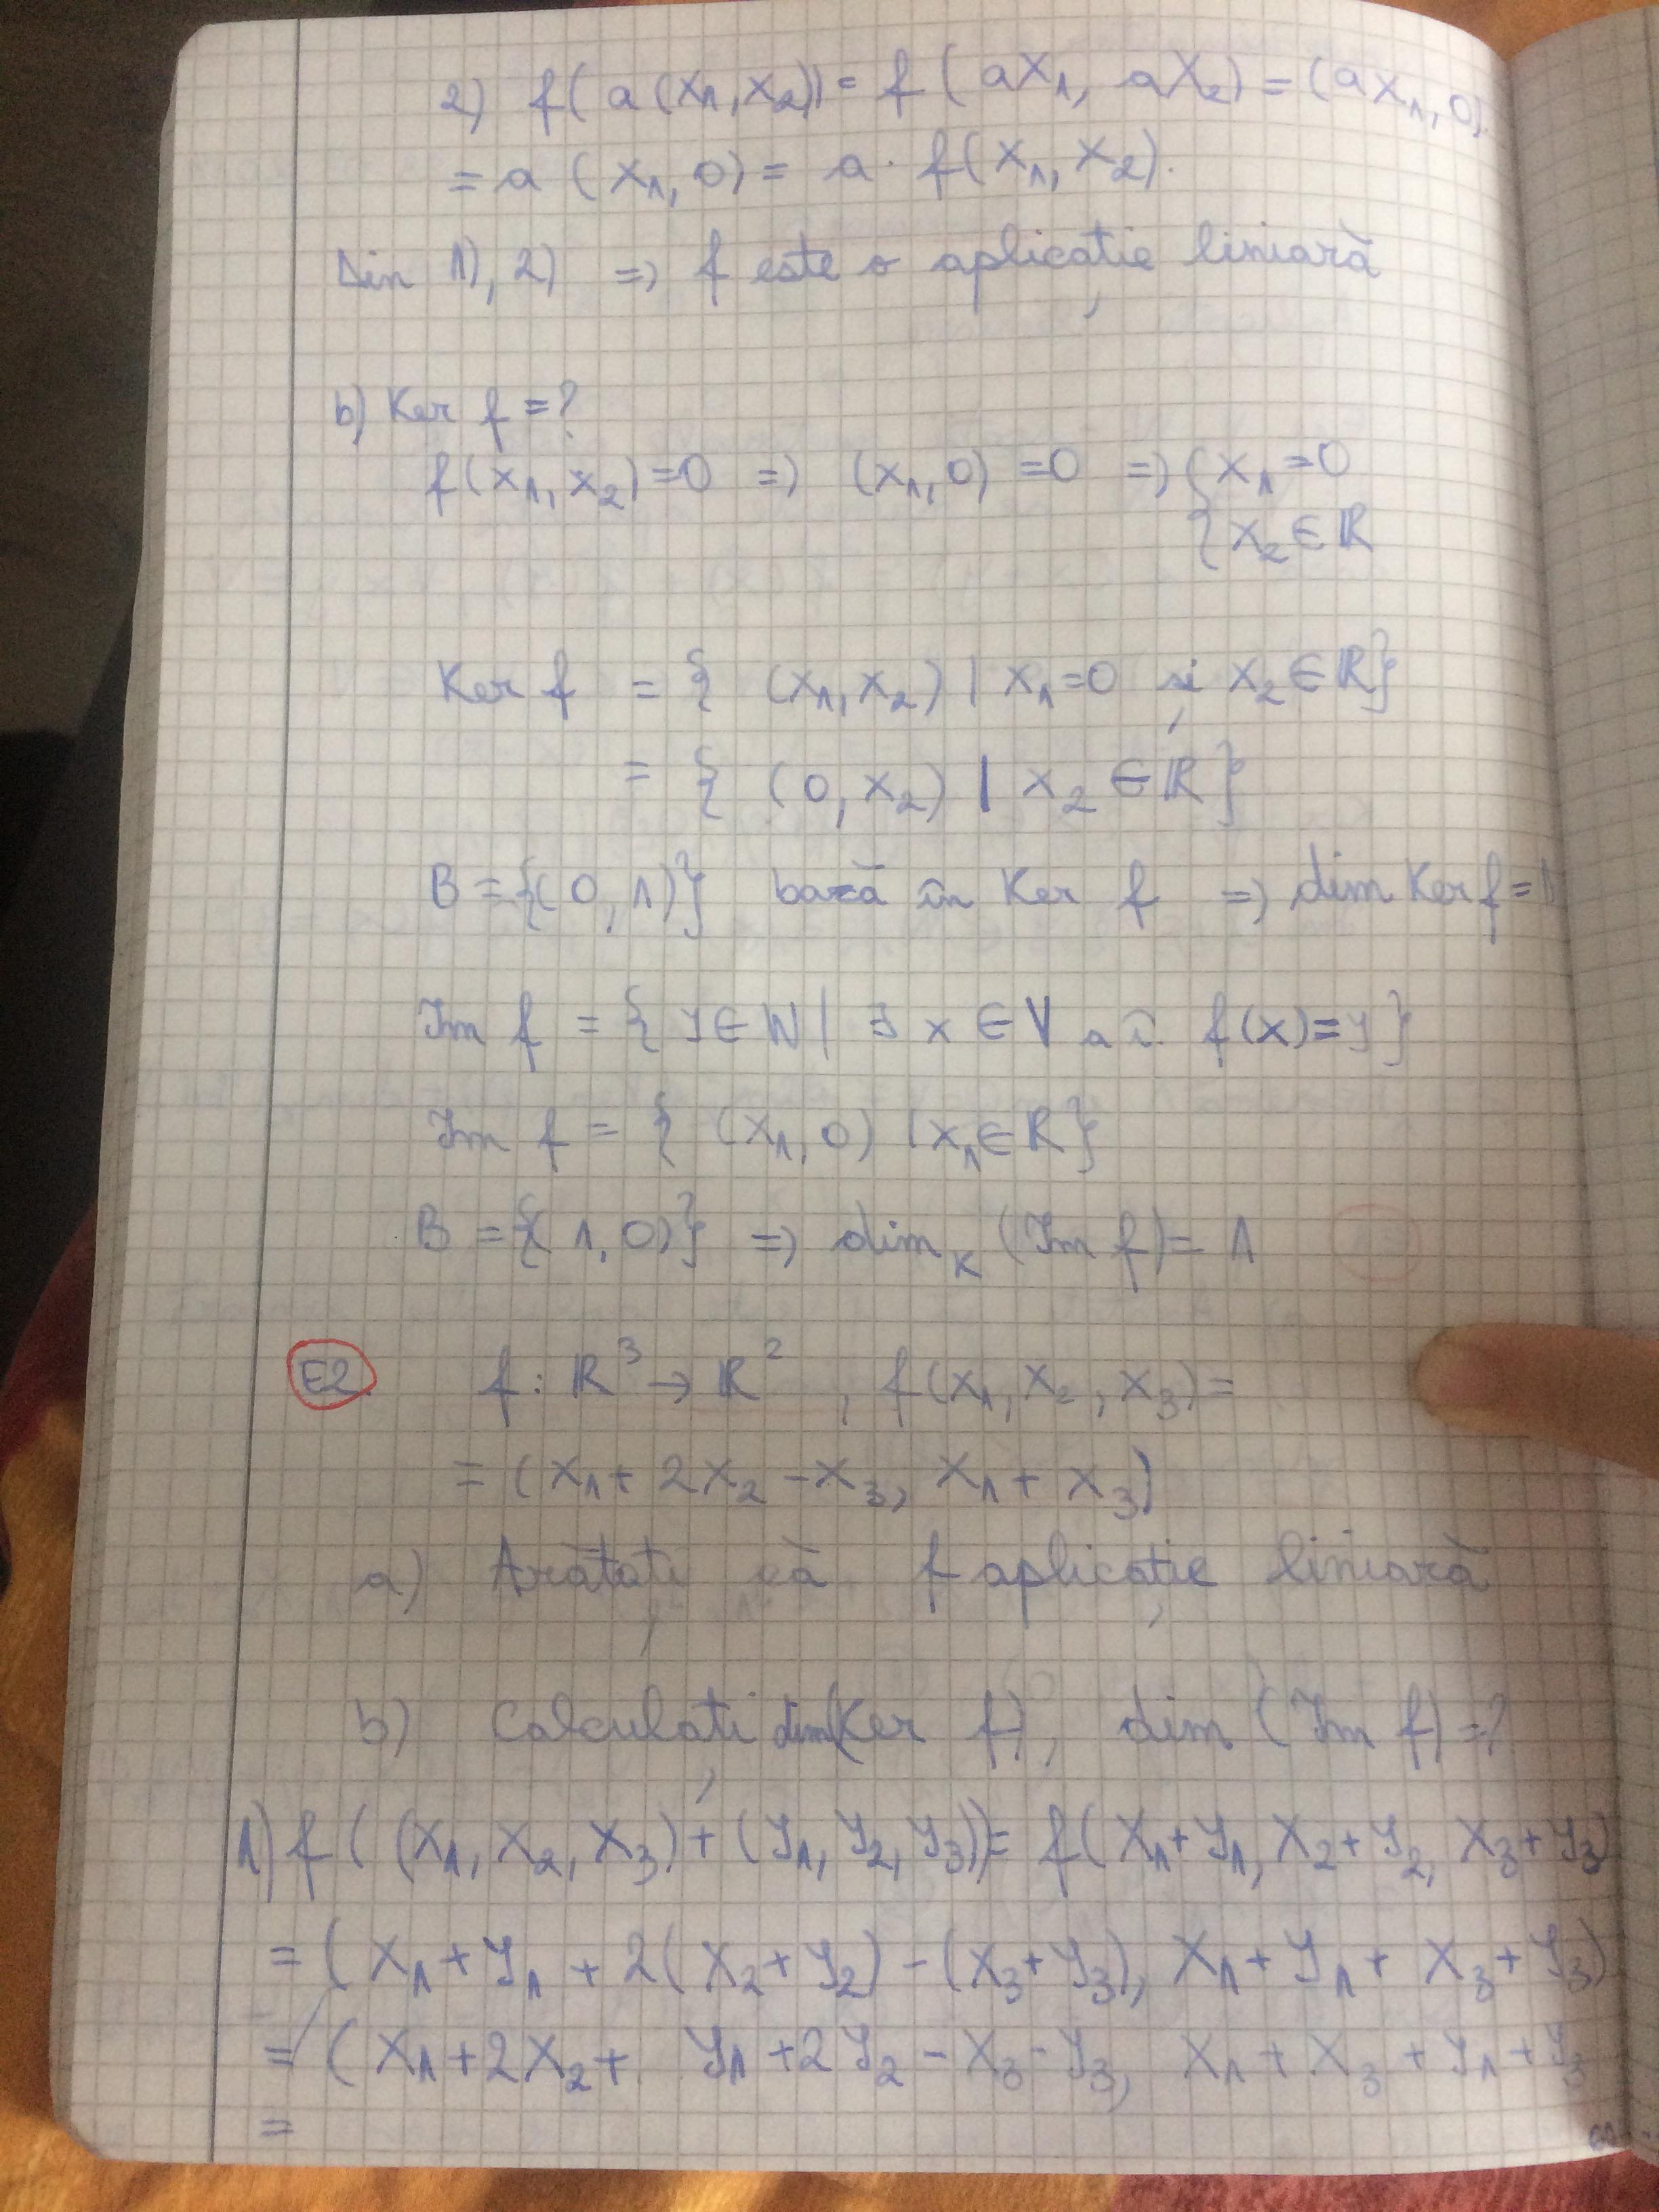 2) f(a(x₁,x₂)) = f(ax₁, ax₂) = (ax₁,0)
= a (x₁,0) = a · f(x₁,x₂).
Din 1), 2) => f este o aplicație liniară
b) Ker f = ?
f(x₁,x₂) = 0 => (x₁,0) = 0 => { x₁ = 0
{ x₂ ∈ ℝ
Ker f = { (x₁,x₂) | x₁ = 0 și x₂ ∈ ℝ}
= { (0,x₂) | x₂ ∈ ℝ}
B = {(0,1)} bază în Ker f => dim Ker f = 1
Im f = { y ∈ W | ∃ x ∈ V a î. f(x) = y }
Im f = { (x₁,0) | x₁ ∈ ℝ}
B = {(1,0)} => dim_K (Im f) = 1
E2. f: ℝ³ → ℝ², f(x₁,x₂,x₃) =
= (x₁ + 2x₂ - x₃, x₁ + x₃)
a) Arătați că f aplicație liniară
b) Calculați dim(Ker f), dim (Im f) = ?
1) f ((x₁,x₂,x₃) + (y₁,y₂,y₃)) = f(x₁+y₁, x₂+y₂, x₃+y₃)
= (x₁ + y₁ + 2(x₂+y₂) - (x₃+y₃), x₁ + y₁ + x₃ + y₃)
= (x₁ + 2x₂ + y₁ + 2y₂ - x₃ - y₃, x₁ + x₃ + y₁ + y₃
=